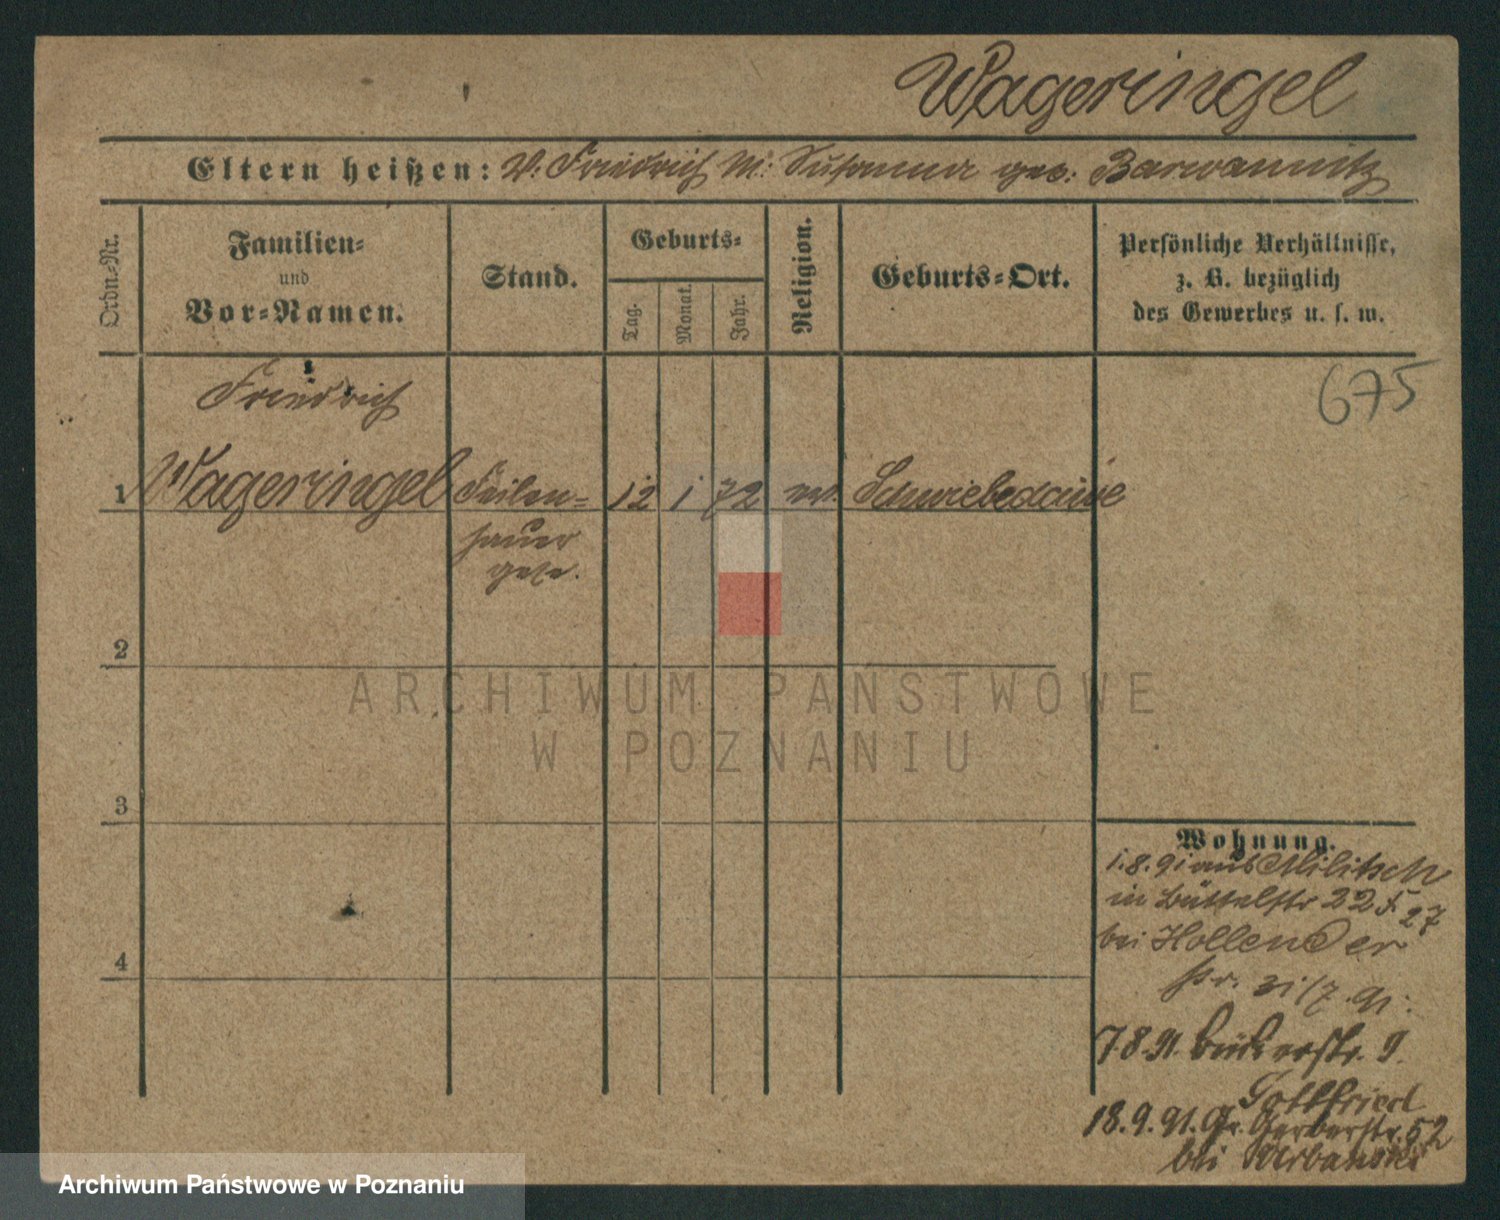 Wageringel
Eltern heißen: V: Friedrich M: Susanna geb: Barwannitz
Ordn=Nr.
Familien=
und
Vor=Namen.
Stand.
Geburts=
Tag.
Monat.
Jahr.
Religion.
Geburts=Ort.
Persönliche Verhältnisse,
z. B. bezüglich
des Gewerbes u. s. w.
675
Friedrich
1 Wageringel Feilen= 12 1 72 ev. Schwiebedawe
hauer
gese.
2
3
4
Wohnung.
1.8.91 aus Militsch
in Büttelstr 22 27
bei Hollender
31/7.91.
7.8.91. Bäckerstr. 9.
Gottfried
18.9.91. Gr. Gerberstr. 52
bei Urbanski
ARCHIWUM PAŃSTWOWE
W POZNANIU
Archiwum Państwowe w Poznaniu